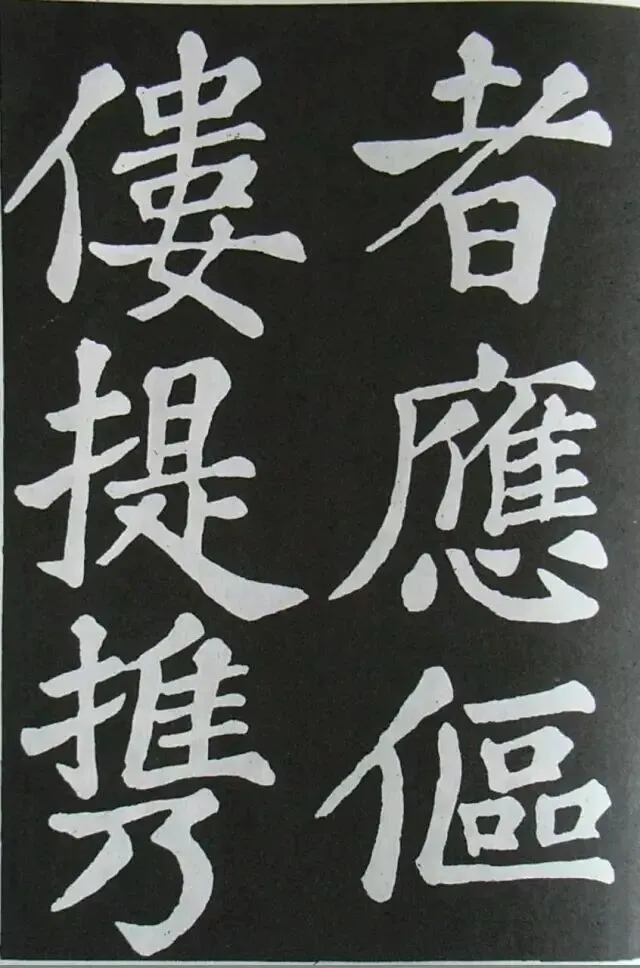 者應傴
僂提携